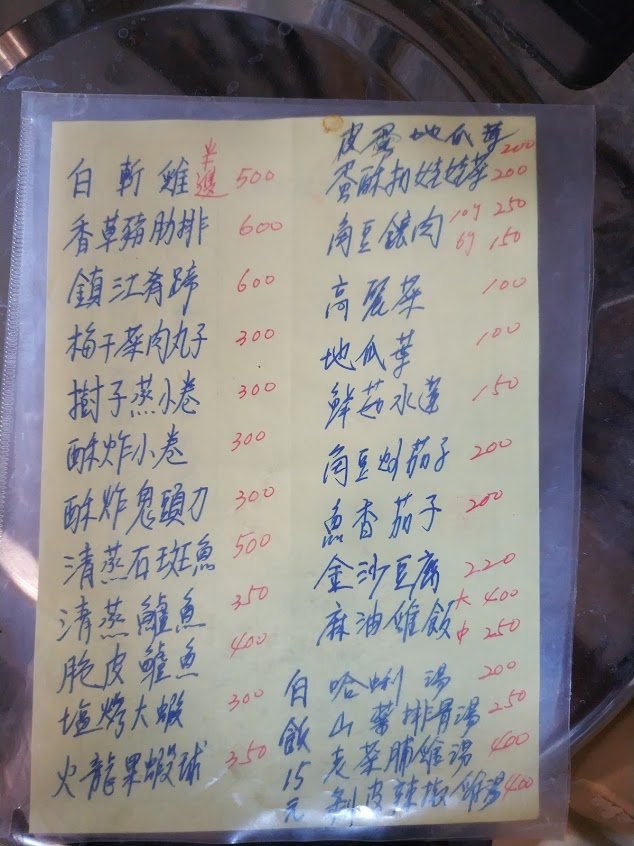 白斬雞 半邊 500
香草豬肋排 600
鎮江肴蹄 600
梅干菜肉丸子 300
樹子蒸小卷 300
酥炸小卷 300
酥炸鬼頭刀 300
清蒸石斑魚 500
清蒸鱸魚 350
脆皮鱸魚 400
塩烤大蝦 300
火龍果蝦球 350
皮蛋地瓜葉 200
蛋酥扣娃娃菜 200
角豆鑲肉 10个 250
6个 150
高麗菜 100
地瓜葉 100
鮮菇水蓮 150
角豆炒茄子 200
魚香茄子 200
金沙豆腐 220
麻油雞飯 大 400
中 250
哈蜊湯 200
山藥排骨湯 250
老菜脯雞湯 400
剝皮辣椒雞湯 400
白飯15元